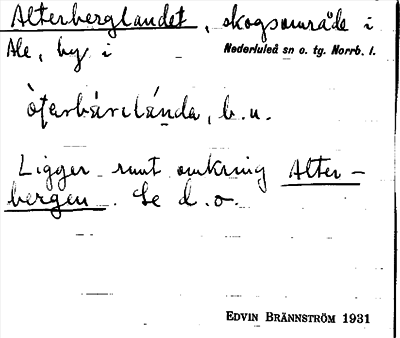 Alterberglandet, skogsområde i
Ale, by i Nederluleå sn o. tg. Norrb. l.
b. u.
Ligger runt omkring Alter-
bergen. Se d. o.
EDVIN BRÄNNSTRÖM 1931